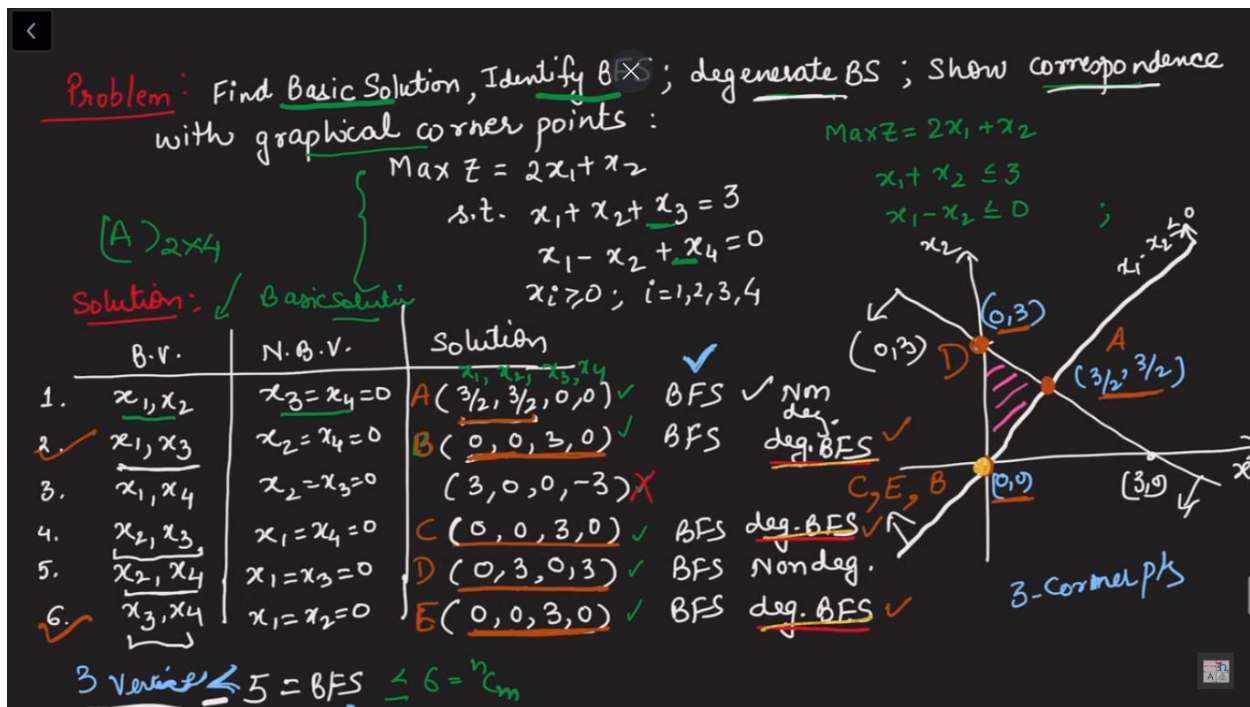 Problem: Find Basic Solution, Identify BFS ; degenerate BS ; Show correspondence
with graphical corner points :
Max Z = 2x₁ + x₂
s.t. x₁ + x₂ + x₃ = 3
x₁ - x₂ + x₄ = 0
xi ≥ 0 ; i = 1,2,3,4
Max Z = 2x₁ + x₂
x₁ + x₂ ≤ 3
x₁ - x₂ ≤ 0 ;
(A)₂ₓ₄
Solution:
Basic solutio
B.V. N.B.V. Solution
x₁, x₂, x₃, x₄
1. x₁, x₂ x₃ = x₄ = 0 A (3/2, 3/2, 0, 0) ✓ BFS ✓ Non deg.
2. x₁, x₃ x₂ = x₄ = 0 B (0, 0, 3, 0) ✓ BFS deg. BFS ✓
3. x₁, x₄ x₂ = x₃ = 0 (3, 0, 0, -3) X
4. x₂, x₃ x₁ = x₄ = 0 C (0, 0, 3, 0) ✓ BFS deg. BFS ✓
5. x₂, x₄ x₁ = x₃ = 0 D (0, 3, 0, 3) ✓ BFS Non deg.
6. x₃, x₄ x₁ = x₂ = 0 E (0, 0, 3, 0) ✓ BFS deg. BFS ✓
x₂
x₁ - x₂ ≤ 0
(0,3)
(0,3) D
A
(3/2, 3/2)
C, E, B (0,0)
(3,0)
3-Corner pts
≤ 5 = BFS ≤ 6 = ⁿCm